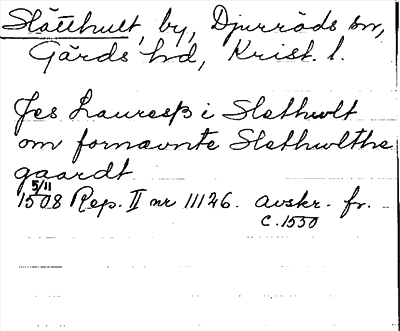 Slätthult, by, Djurröds sn,
Gärds hd, Krist. l.
Jes Lauresß i Slethwlt
om fornævnte Slethwlthe
gaardt
5/11
1508 Rep. II nr 11126. avskr. fr.
c. 1550